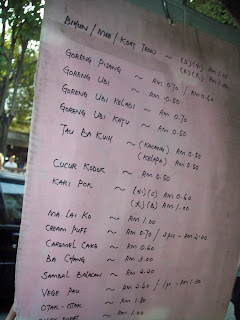 BIHUN / MEE / KOAY TEOW ~ (小)(S)
(大)(B) RM
GORENG PISANG ~ RM 0.70 / RM 0.60
GORENG UBI ~ RM 0.50
GORENG UBI KELADI ~ RM 0.70
GORENG UBI KAYU ~ RM 0.50
TAU BA KUIH ~ (KACANG) RM 0.50
(KELAPA) RM 0.50
CUCUR KODOK ~ RM 0.50
KARI POK ~ (小)(S) RM 0.60
(大)(B) RM 1.00
MA LAI KO ~ RM 1.00
CREAM PUFF ~ RM 0.70 / 3pcs - RM 2.00
CARAMEL CAKE ~ RM 0.60
BA CHANG ~ RM 3.00
SAMBAL BALACAN ~ RM 2.00
VEGE PAU ~ RM 0.60 / RM 1.80
OTAK-OTAK ~ RM 1.80
~ RM 1.00